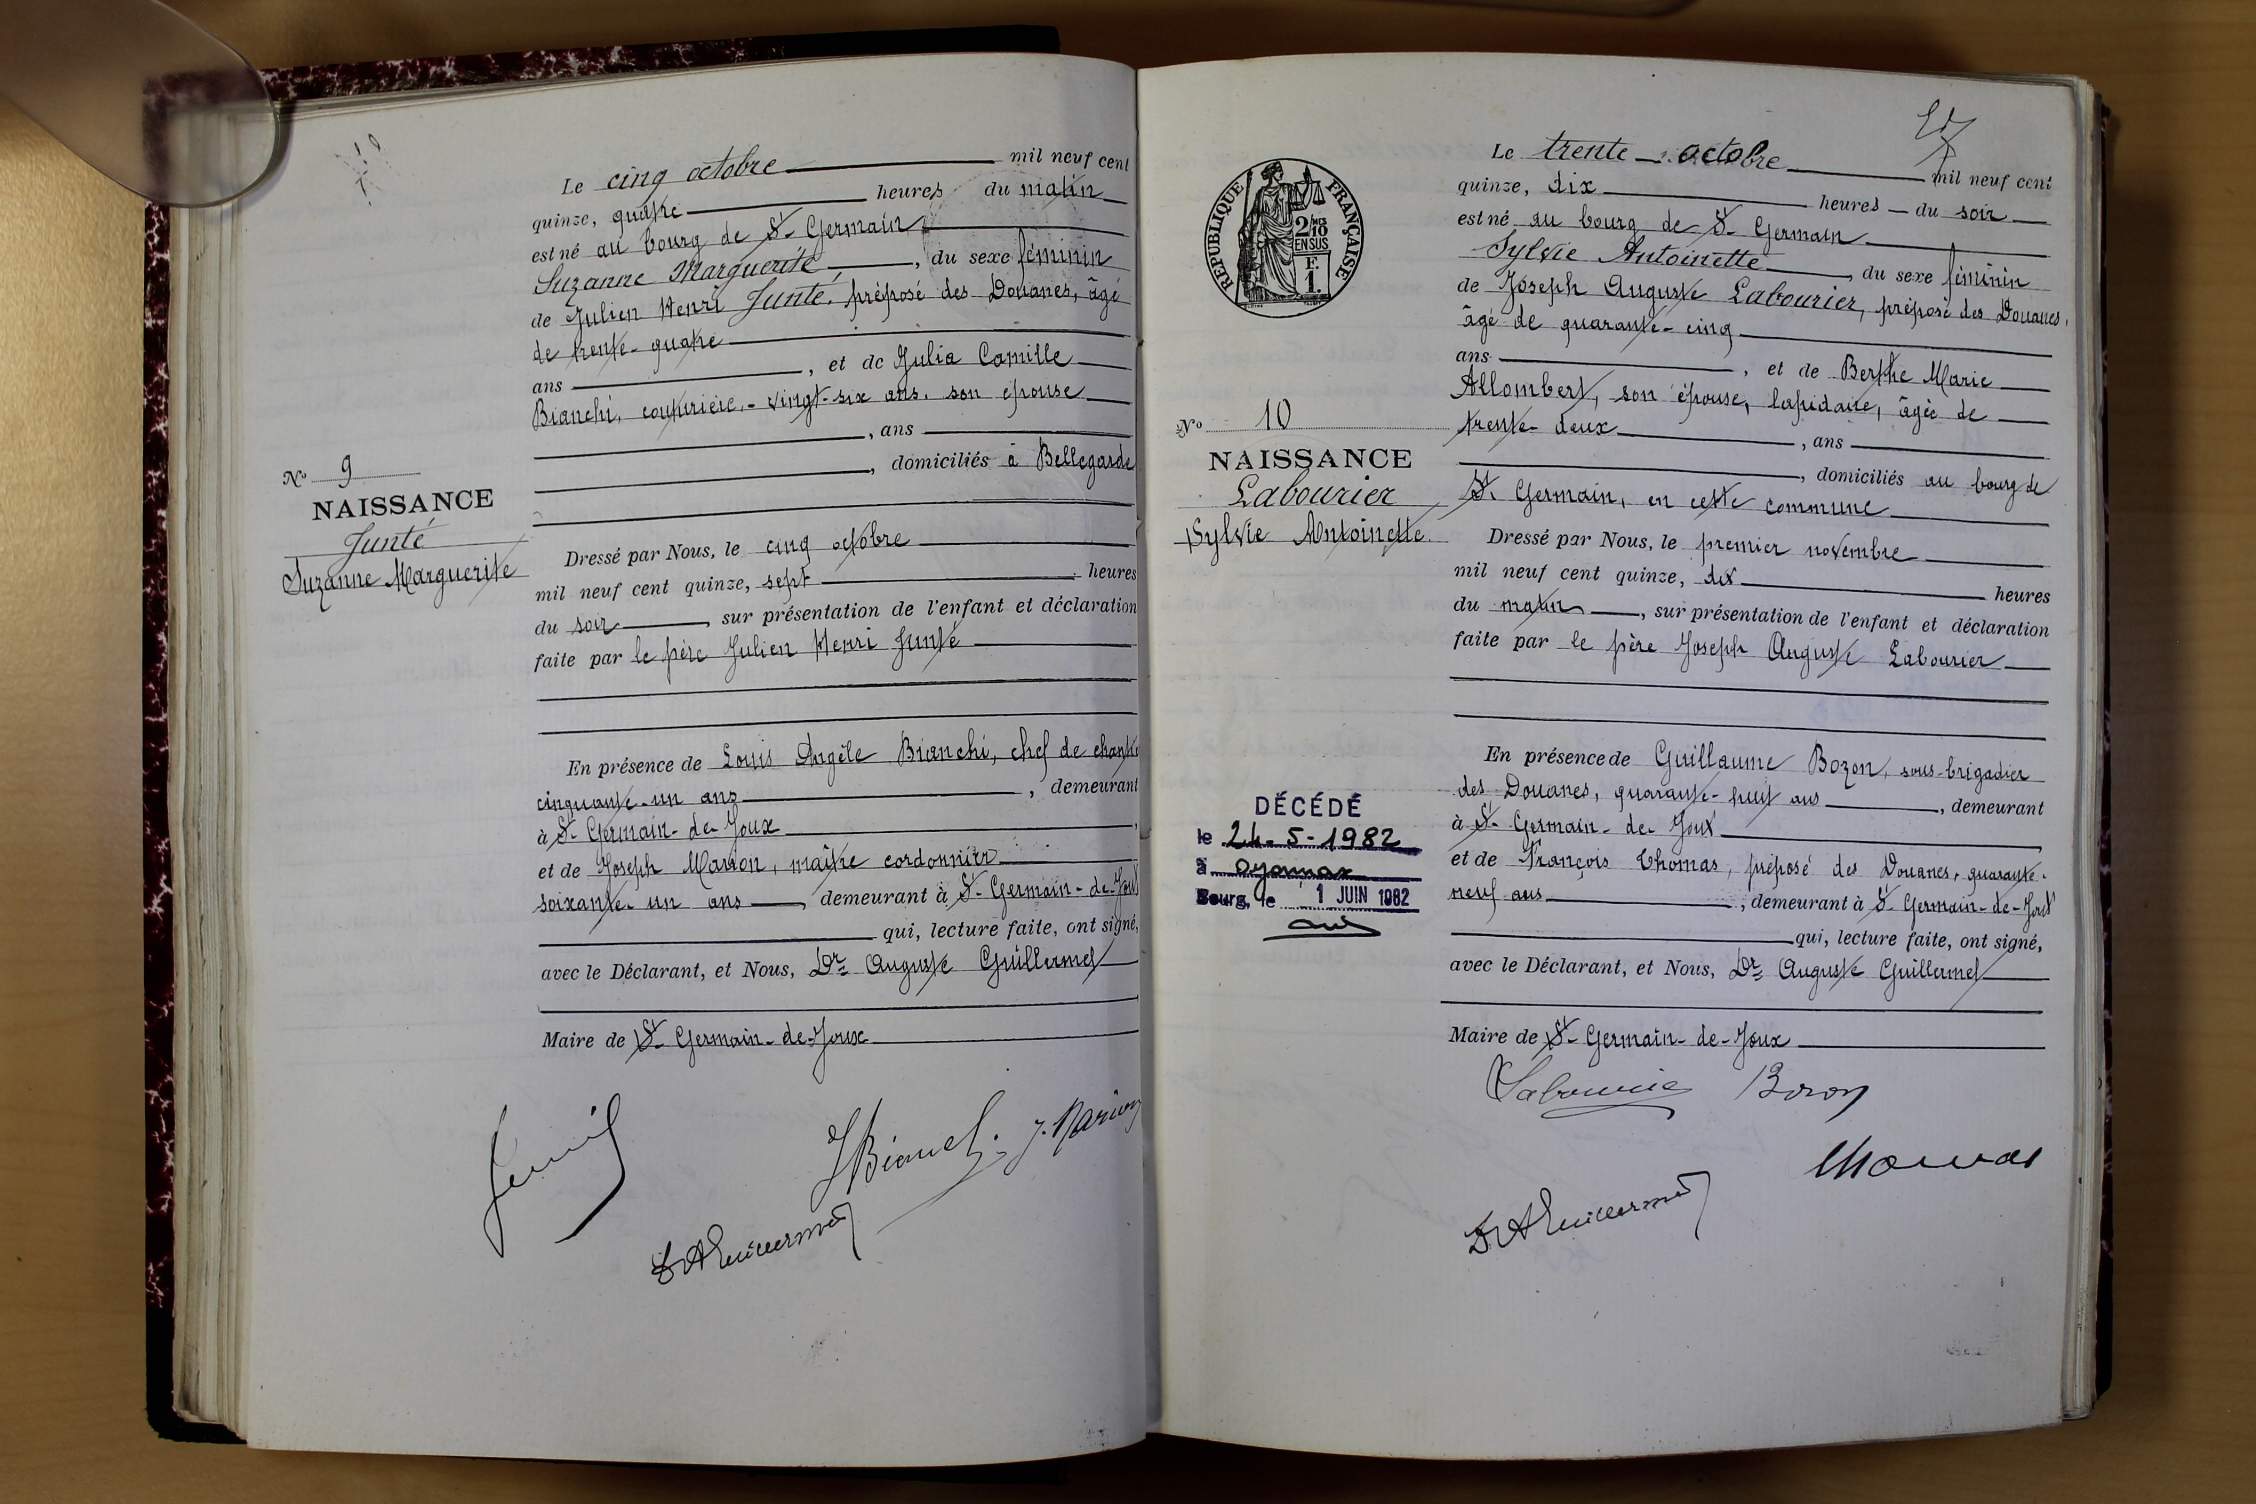 Le cinq octobre mil neuf cent
quinze, quatre heures du matin
est né au bourg de St Germain
Suzanne Marguerite, du sexe féminin
de Julien Henri Junté, préposé des Douanes, âgé
de trente-quatre
ans, et de Julia Camille
Bianchi, couturière, vingt-six ans, son épouse
, ans
, domiciliés à Bellegarde
No 9
NAISSANCE
Junté
Suzanne Marguerite
Dressé par Nous, le cinq octobre
mil neuf cent quinze, sept heures
du soir, sur présentation de l'enfant et déclaration
faite par le père Julien Henri Junté
En présence de Louis Angèle Bianchi, chef de
cinquante-un ans, demeurant
à St Germain-de-Joux,
et de Joseph Marion, maître cordonnier
soixante-un ans, demeurant à St Germain-de-Joux
qui, lecture faite, ont signé,
avec le Déclarant, et Nous, Dr Auguste Guillermet
Maire de St Germain-de-Joux
J. Marion
Le trente octobre mil neuf cent
quinze, dix heures du soir
est né au bourg de St Germain
Sylvie Antoinette, du sexe féminin
de Joseph Auguste Labourier, préposé des Douanes,
âgé de quarante-cinq
ans, et de Berthe Marie
Allombert, son épouse, lapidaire, âgée de
trente-deux, ans
, domiciliés au bourg de
St Germain, en cette commune
RÉPUBLIQUE FRANÇAISE
2/10 MES
EN SUS
F.
1.
No 10
NAISSANCE
Labourier
Sylvie Antoinette
Dressé par Nous, le premier novembre
mil neuf cent quinze, dix heures
du matin, sur présentation de l'enfant et déclaration
faite par le père Joseph Auguste Labourier
En présence de Guillaume Bozon, sous-brigadier
des Douanes, quarante-huit ans, demeurant
à St Germain-de-Joux
et de François Thomas, préposé des Douanes, quarante-
neuf ans, demeurant à St Germain-de-Joux
qui, lecture faite, ont signé,
avec le Déclarant, et Nous, Dr Auguste Guillermet
Maire de St Germain-de-Joux
DÉCÉDÉ
le 24-5-1982
à Oyonnax
Bourg, le 1 JUIN 1982
Labourier Bozon
Thomas
Dr A Guillermet